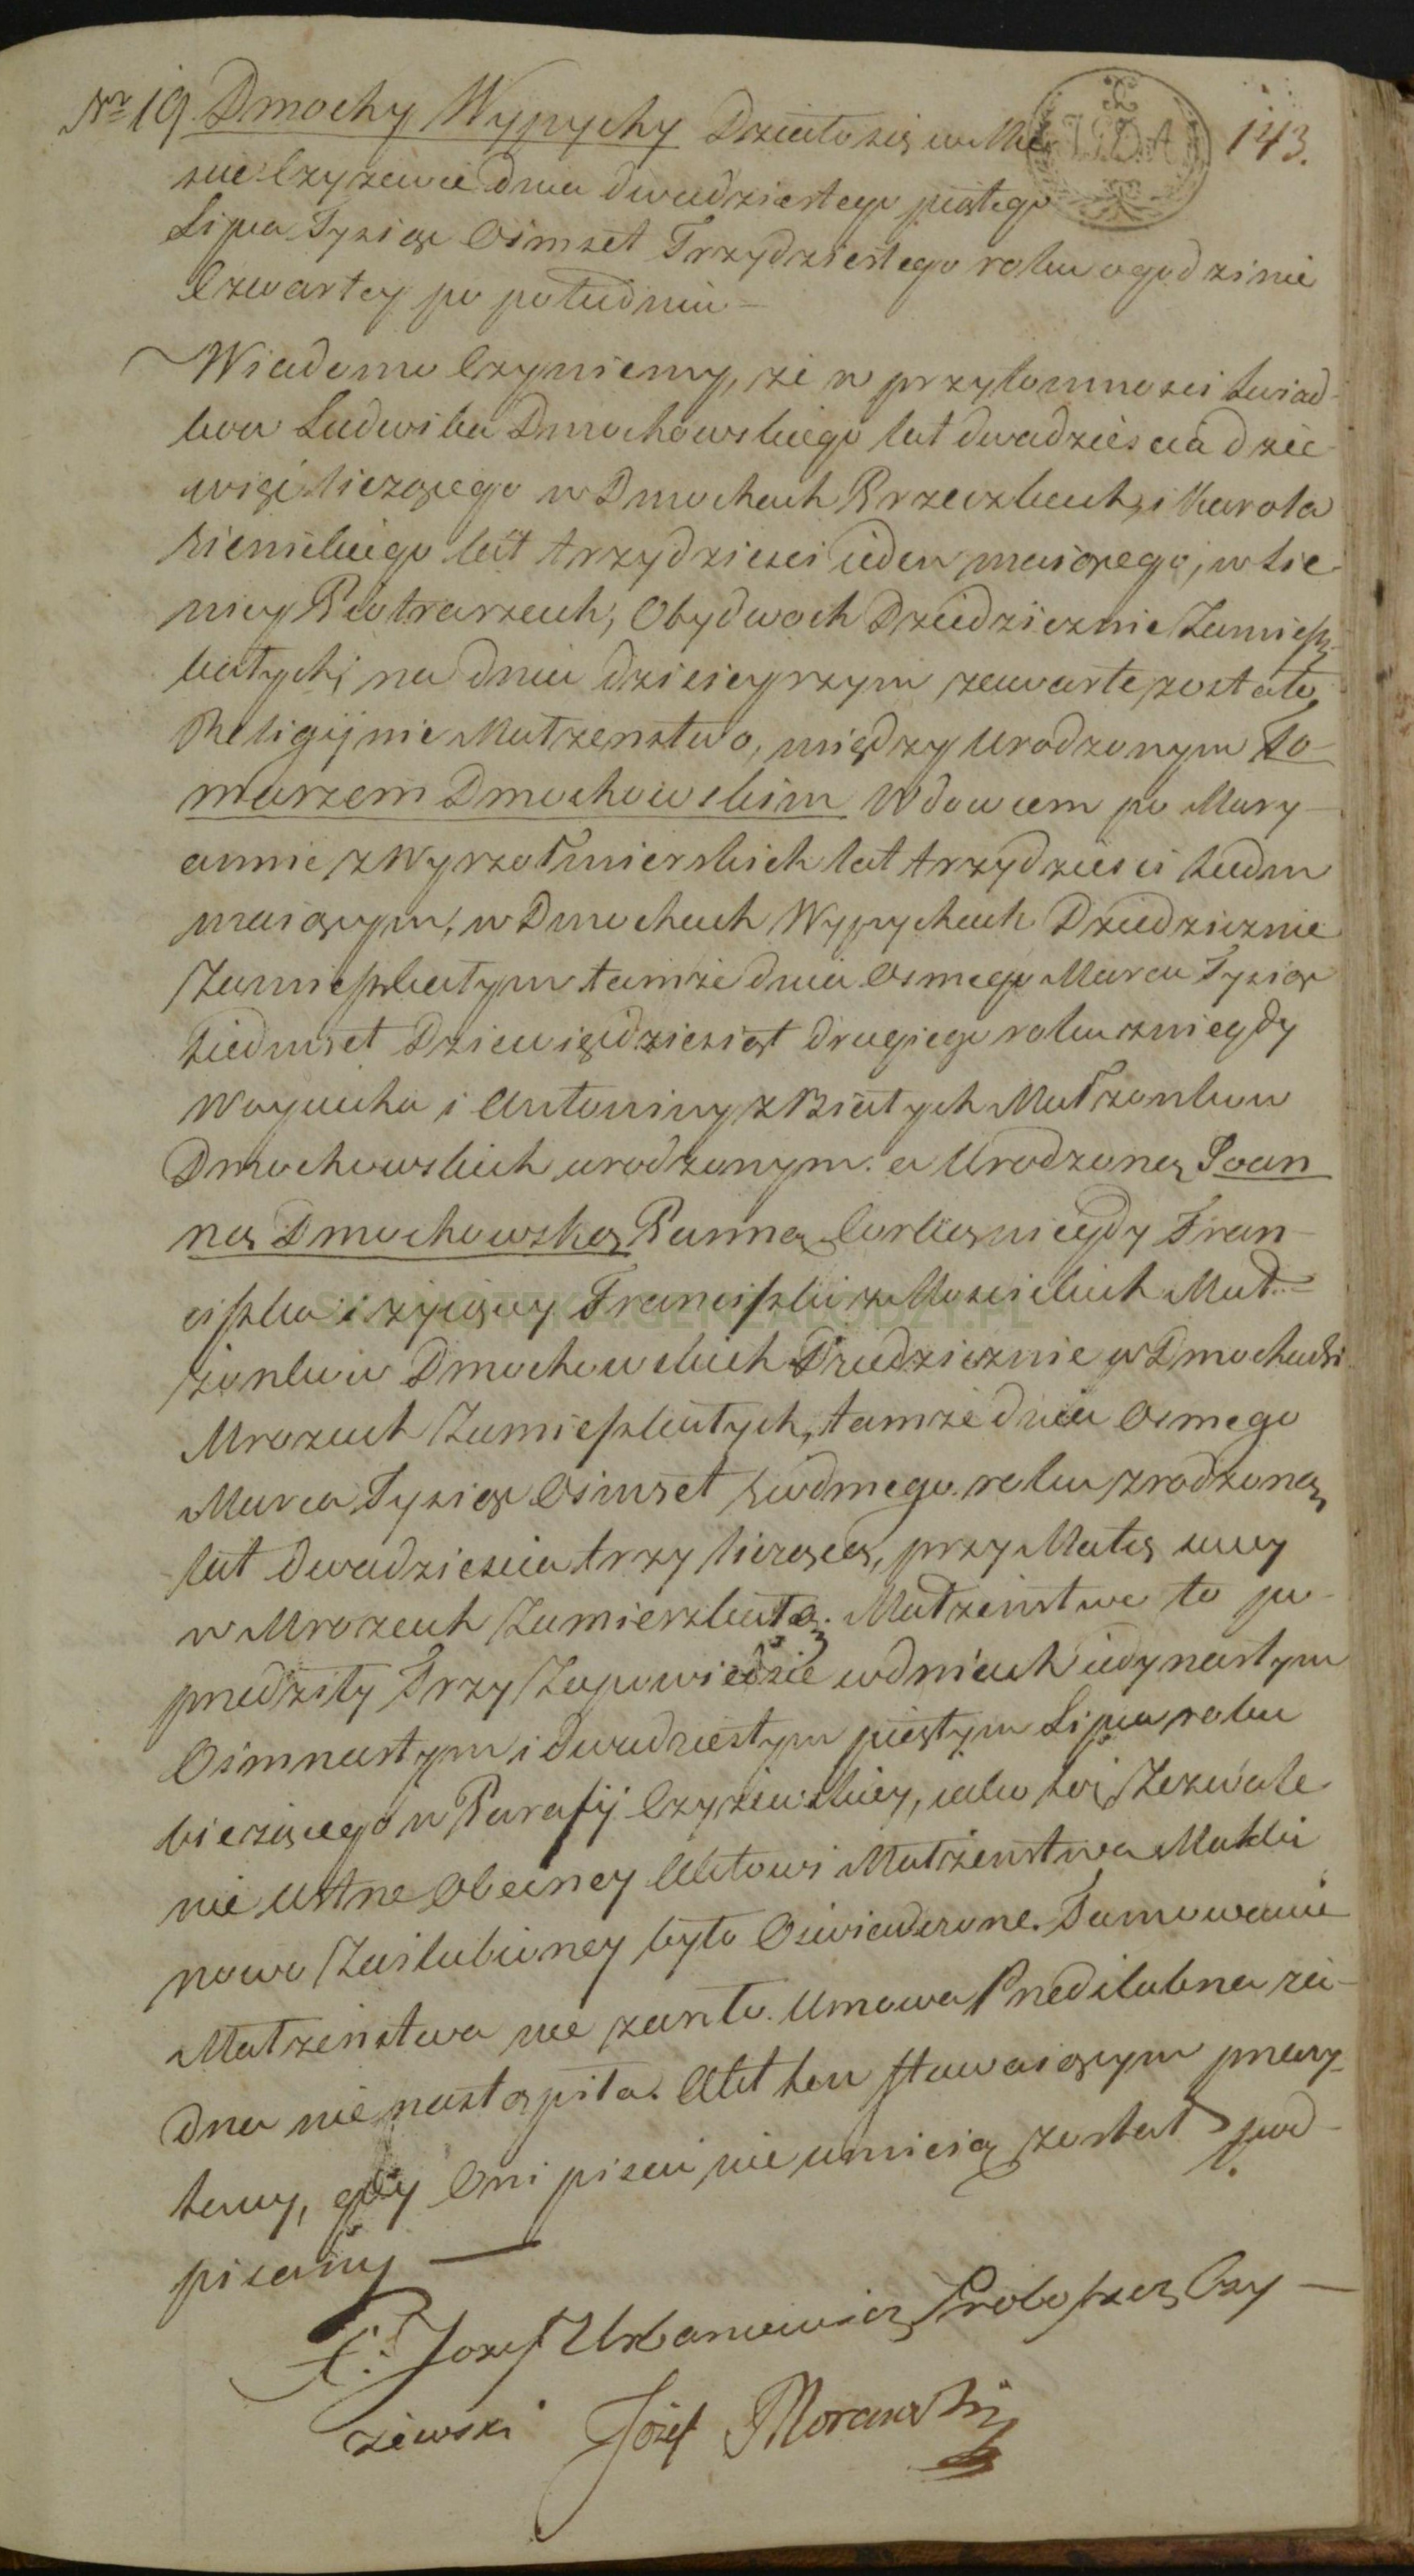 Nr 19. Dmochy Wypychy Działo się w Mie
143.
ście Czyżewie dnia dwudziestego piątego
Lipca Tysiąc Ośmset Trzydziestego roku o godzinie
Czwartey po południu —
Wiadomo Czyniemy, że w przytomności świad-
kow Ludwika Dmochowskiego lat dwadzieścia dzie-
więć liczącego w Dmochach Przeczkach, i Karola
Sienickiego lat trzydzieści ieden maiącego, w Sie-
nicy Pietraszach, Obydwoch Dziedzicznie Zamiesz-
kałych; na dniu dzisieyszym zawarte zostało
Religijnie Małżeństwo, między Urodzonym To-
maszem Dmochowskim Wdowcem po Mary-
annie z Wyszomierskich lat trzydzieści siedm
maiącym, w Dmochach Wypychach Dziedzicznie
Zamieszkałym tamże dnia Osmego Marca Tysiąc
siedmset Dziewięćdziesiąt drugiego roku z niegdy
Woyciecha i Antoniny z Białych Małżonkow
Dmochowskich urodzonym. a Urodzoną Joan
ną Dmochowską Panną Corką niegdy Fran-
ciszka i żyiącey Franciszki z Mościckich Mał-
żonkow Dmochowskich Dziedzicznie w Dmochach
Mrozach Zamieszkałych, tamże dnia Osmego
Marca Tysiąc Ośmset siodmego roku zrodzoną
lat dwadzieścia trzy liczącą, przy Matce swey
w Mrozach Zamieszkałą. Małżeństwo to po-
przedziły Trzy Zapowiedzie w dniach iedynastym
Osimnastym i dwudziestym piątym Lipca roku
bieżącego w Parafij Czyżewskiey, iako też Zezwole
nie ustne Obecney Aktowi Małżeństwa Matki
nowo Zaślubioney było Oświadczone. Tamowanie
Małżeństwa nie zaszło. Umowa Przedślubna ża-
dna nie nastąpiła. Akt ten stawaiącym przeczy-
tany, gdy Oni pisać nie umieią został pod-
pisany —
X. Jozef Urbanowicz Proboszcz Czy-
żewski Józef Morawski